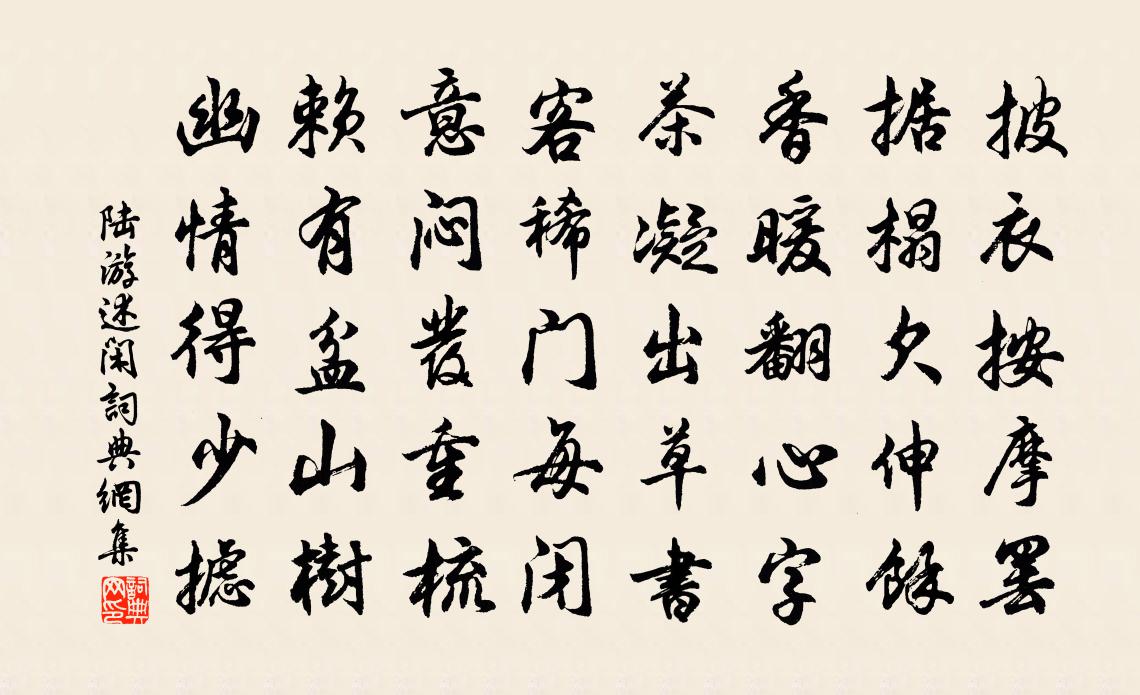 披衣按摩罢
据榻欠伸馀
香暖翻心字
茶凝出草書
客稀门每闭
意闷发重梳
赖有盆山樹
幽情得少摅
陆游述闲詞典網集
詞典网印